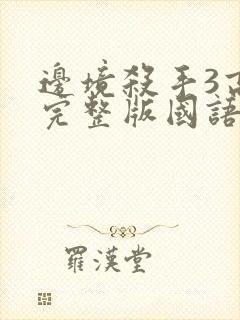 邊境殺手3高
完整版國語
羅漢堂